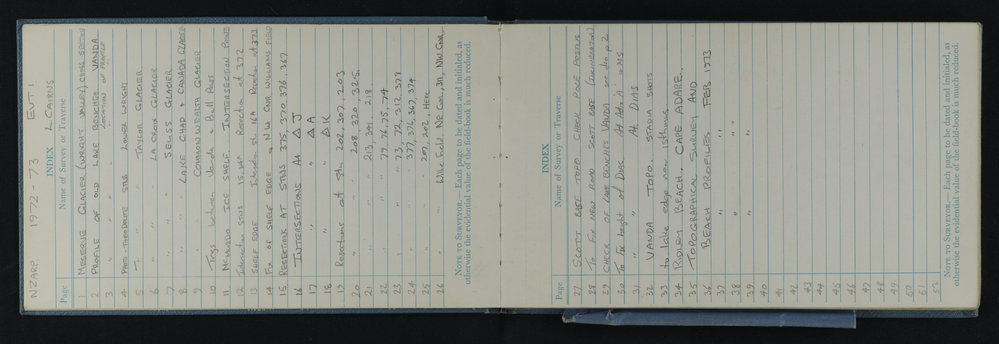 NZARP 1972-73 EVT 1
INDEX L. CAIRNS
Page Name of Survey or Traverse
1 MESERVE GLACIER (WRIGHT VALLEY)
2 PROFILE OF OLD LAKE BEACHES VANDA
3 " " " " LOCATION OF PROFILE
4 PHOTO THEODOLITE STNS LOWER WRIGHT
5 " " TAYLOR GLACIER
6 " " LA CROIX GLACIER
7 " " SEUSS GLACIER
8 " " LAKE CHAD & CANADA GLACIER
9 " " COMMONWEALTH GLACIER
10 Trigs between Vanda & Bull Pass
11 McMURDO ICE SHELF. INTERSECTION POINTS
12 Intersection STNS 15, 14A Resection at 372
13 SHELF EDGE Intersection stn 16A Resection at 373
14 FIX OF SHELF EDGE & N.W COR WILLIAMS FIELD
15 RESECTIONS AT STNS 375, 370, 376, 367
16 INTERSECTIONS At △ J
17 " " △ A
18 " " △ K
19 Resections at Stn 202, 307, 203
20 " " 208, 320, 325
21 " " 213, 341, 218
22 " " 79, 76, 75, 74
23 " " 73, 72, 212, 378
24 " " 377, 376, 367, 374
25 " " 207, 202, Here
26 " " Wills Field Ne Cor, 311, NW Cor.
NOTE TO SURVEYOR.—Each page to be dated and initialed, as
otherwise the evidential value of the field-book is much reduced.
INDEX
Page Name of Survey or Traverse
27 SCOTT BASE TOPO CHECK POLE POSTNS
28 To FIX NEW ROAD SCOTT BASE
29 CHECK OF LAKE BENCHMTS VANDA see also p 2
30 To Fix height of Dias
31 " " At DIAS
32 VANDA TOPO. STADIA SHOTS
33 to lake edge near isthmus.
34 RIDLEY BEACH. CAPE ADARE.
35 TOPOGRAPHICAL SURVEY AND
36 BEACH PROFILES FEB 1973
37 " "
38 " "
39 " "
40
41
42
43
44
45
46
47
48
49
50
51
52
NOTE TO SURVEYOR.—Each page to be dated and initialed, as
otherwise the evidential value of the field-book is much reduced.